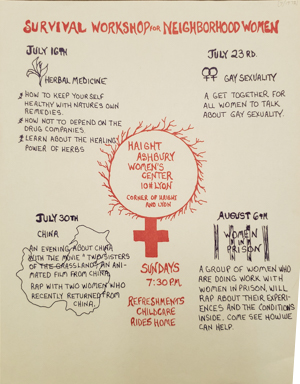 SURVIVAL WORKSHOP FOR NEIGHBORHOOD WOMEN
JULY 16TH
HERBAL MEDICINE
HOW TO KEEP YOURSELF
HEALTHY WITH NATURES OWN
REMEDIES.
HOW NOT TO DEPEND ON THE
DRUG COMPANIES.
LEARN ABOUT THE HEALING
POWER OF HERBS
JULY 23RD.
GAY SEXUALITY
A GET TOGETHER FOR
ALL WOMEN TO TALK
ABOUT GAY SEXUALITY.
HAIGHT
ASHBURY
WOMEN'S
CENTER
101 LYON
CORNER OF HAIGHT
AND LYON
SUNDAYS
7:30 P.M.
REFRESHMENTS
CHILDCARE
RIDES HOME
JULY 30TH
CHINA
AN EVENING ABOUT CHINA
WITH THE MOVIE "TWO SISTERS
OF THE GRASSLAND" AN ANI-
MATED FILM FROM CHINA.
RAP WITH TWO WOMEN WHO
RECENTLY RETURNED FROM
CHINA.
AUGUST 6TH
WOMEN
IN
PRISON
A GROUP OF WOMEN WHO
ARE DOING WORK WITH
WOMEN IN PRISON, WILL
RAP ABOUT THEIR EXPERI-
ENCES AND THE CONDITIONS
INSIDE. COME SEE HOW WE
CAN HELP.